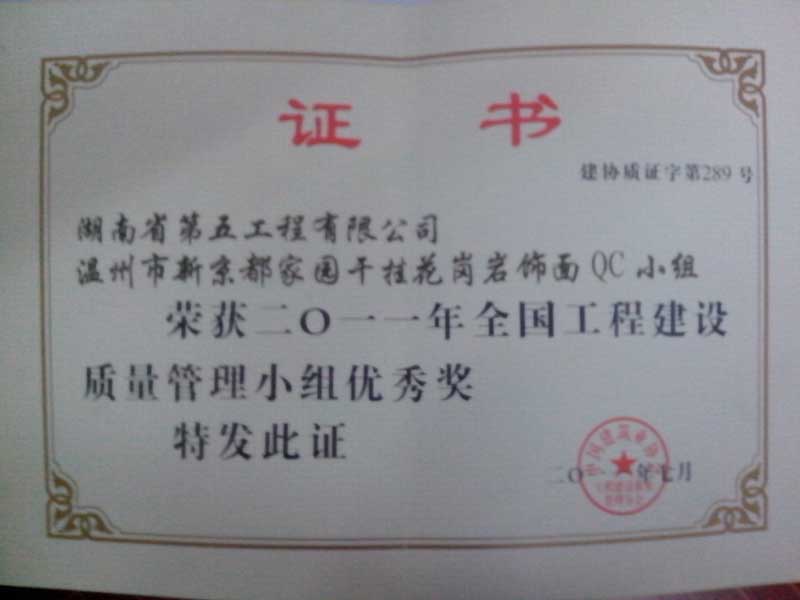 证 书
建协质证字第289号
湖南省第五工程有限公司
温州市新京都家园干挂花岗岩饰面QC小组
荣获二〇一一年全国工程建设
质量管理小组优秀奖
特发此证
中国建筑业协
二〇 年七月